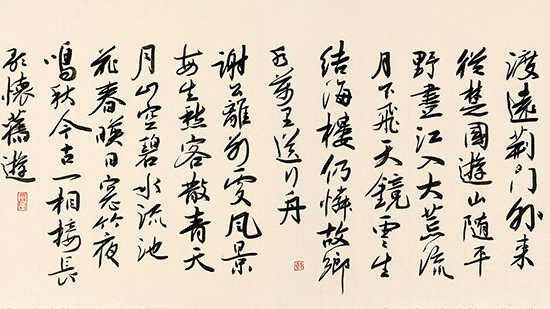 渡遠荆门外来
從楚國遊山随平
野盡江入大荒流
月下飛天鏡雲生
结海樓仍憐故鄉
水萬里送行舟
谢公離别處风景
每生愁客散青天
月山空碧水流池
花春暎日窓竹夜
鳴秋今古一相接長
歌懷舊遊